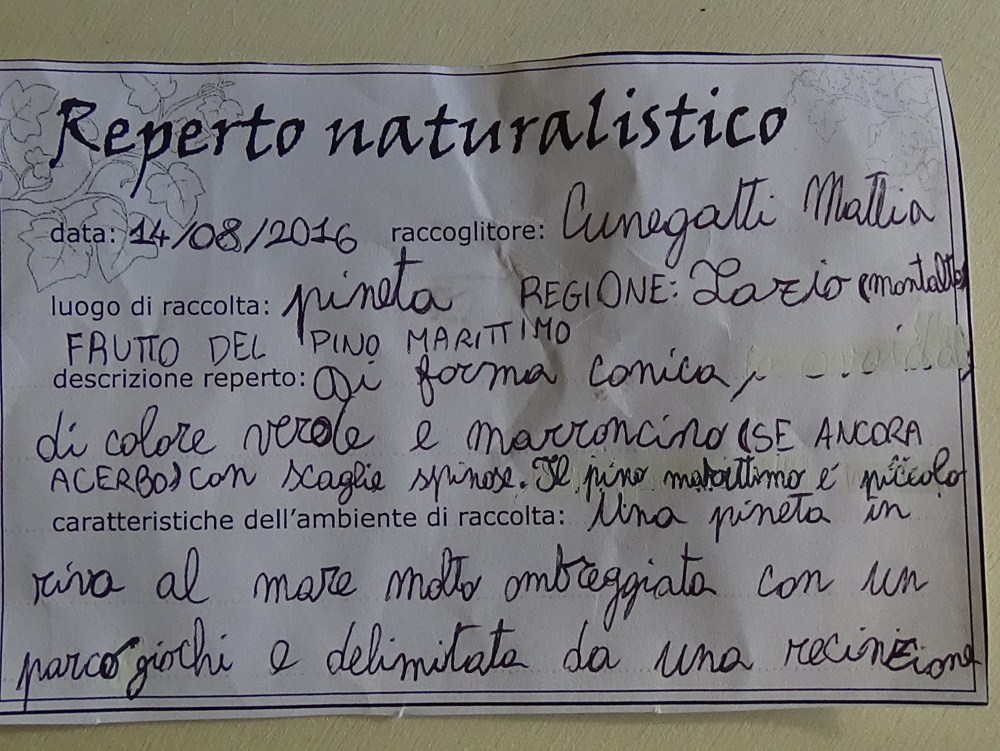 Reperto naturalistico
data: 14/08/2016 raccoglitore: Cunegatti Mattia
luogo di raccolta: pineta REGIONE: Lazio (montalto
FRUTTO DEL PINO MARITTIMO
descrizione reperto: Di forma conica,
di colore verde e marroncino (SE ANCORA
ACERBO) con scaglie spinose. Il pino marittimo é piccolo
caratteristiche dell'ambiente di raccolta: Una pineta in
riva al mare molto ombreggiata con un
parco giochi e delimitata da una recinzione